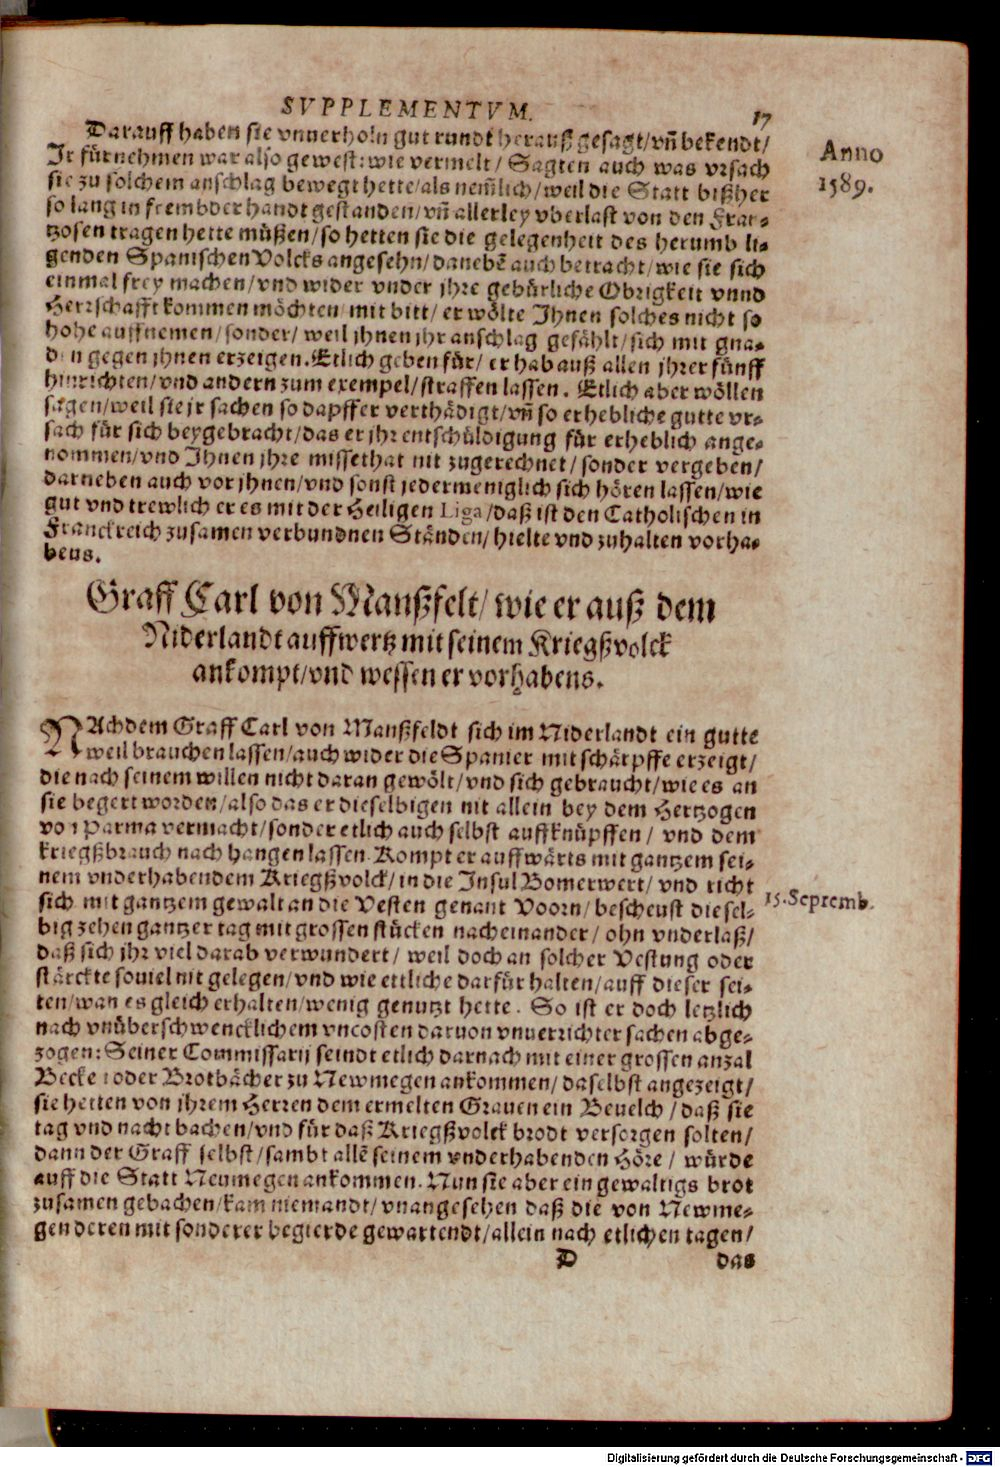 SVPPLEMENTVM.
17
Darauff haben sie vnuerholn gut rundt herauß gesagt/vñ bekendt/
Anno
1589.
Ir fürnehmen war also gewest: wie vermelt/ Sagten auch was vrsach
sie zu solchem anschlag bewegt hette/als nem̃lich/weil die Statt bißher
so lang in frembder handt gestanden/vñ allerley vberlast von den Fran-
tzosen tragen hette müßen/so hetten sie die gelegenheit des herumb li-
genden Spanischen Volcks angesehn/danebẽ auch betracht/wie sie sich
einmal frey machen/vnd wider vnder jhre gebürliche Obrigkeit vnnd
Herrschafft kommen möchten/ mit bitt/ er wölte Ihnen solches nicht so
hohe auffnemen/sonder/ weil jhnen jhr anschlag gefählt/sich mit gna-
den gegen jhnen erzeigen. Etlich geben für/ er hab auß allen jhrer fünff
hinrichten/vnd andern zum exempel/straffen lassen. Etlich aber wöllen
sagen/weil sie jr sachen so dapffer verthädigt/vñ so erhebliche gutte vr-
sach für sich beygebracht/das er jhr entschüldigung für erheblich ange-
nommen/vnd Ihnen jhre missethat nit zugerechnet/sonder vergeben/
darneben auch vor jhnen/vnd sonst jedermeniglich sich hören lassen/wie
gut vnd trewlich er es mit der Heiligen Liga/daß ist den Catholischen in
Franckreich zusamen verbundnen Ständen/hielte vnd zuhalten vorha-
bens.
Graff Carl von Manßfelt/ wie er auß dem
Niderlandt auffwertz mit seinem Kriegßvolck
ankompt/vnd wessen er vorhabens.
NAchdem Graff Carl von Manßfeldt sich im Niderlandt ein gutte
weil brauchen lassen/auch wider die Spanier mit schärpffe erzeigt/
die nach seinem willen nicht daran gewölt/vnd sich gebraucht/wie es an
sie begert worden/also das er dieselbigen nit allein bey dem Hertzogen
von Parma vermacht/sonder etlich auch selbst auffknüpffen/ vnd dem
kriegßbrauch nach hangen lassen. Kompt er auffwärts mit gantzem sei-
nem vnderhabendem Kriegßvolck/in die Insul Bomerwert/ vnd richt
15. Septemb.
sich mit gantzem gewalt an die Vesten genant Voorn/bescheust diesel-
big zehen gantzer tag mit grossen stücken nacheinander/ ohn vnderlaß/
daß sich jhr viel darab verwundert/ weil doch an solcher Vestung oder
stärckte souiel nit gelegen/vnd wie ettliche darfür halten/auff dieser sei-
ten/wan es gleich erhalten/wenig genutzt hette. So ist er doch letzlich
nach vnüberschwencklichem vncosten daruon vnuerrichter sachen abge-
zogen: Seiner Commissarij seindt etlich darnach mit einer grossen anzal
Becker oder Brotbächer zu Newmegen ankommen/daselbst angezeigt/
sie hetten von jhrem Herren dem ermelten Grauen ein Beuelch/daß sie
tag vnd nacht bachen/vnd für daß Kriegßvolck brodt versorgen solten/
dann der Graff selbst/sambt allẽ seinem vnderhabenden Höre/ würde
auff die Statt Neumegen ankommen. Nun sie aber ein gewaltigs brot
zusamen gebachen/kam niemandt/vnangesehen daß die von Newme-
gen deren mit sonderer begierde gewartendt/allein nach etlichen tagen/
D
das
Digitalisierung gefördert durch die Deutsche Forschungsgemeinschaft - DFG